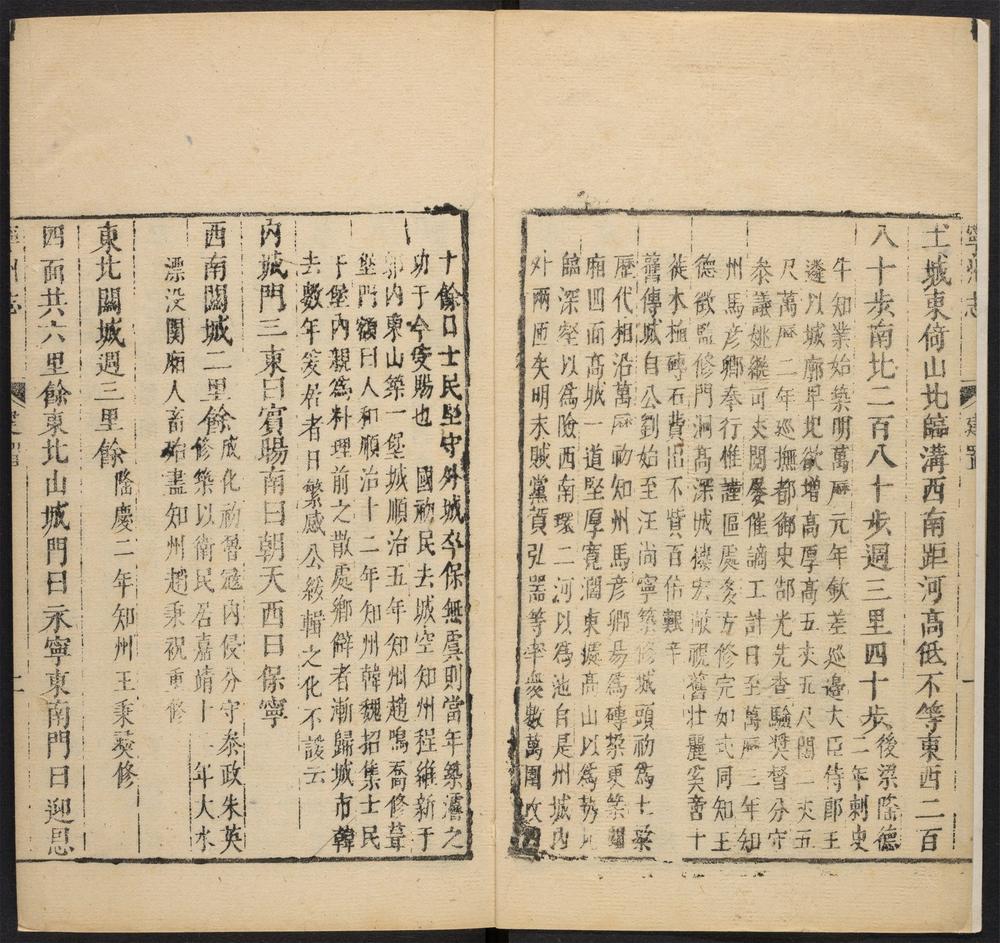 寧州志 建置
土城東倚山北臨溝西南距河高低不等東西二百
八十步南北二百八十步週三里四十步後梁隆德
二年刺史
牛知業始築明萬曆元年欽差巡邊大臣侍郎王
遴以城廓卑圮欲增高厚高五丈五尺闊一丈五
尺萬曆二年巡撫都御史郜光先查驗獎督分守
叅議姚繼可夫閱屢催謫工計日至萬曆三年知
州馬彥卿奉行惟謹區處多方修完如式同知王
德徵監修門洞高深城樓宏敞視舊壯麗奚啻十
徙木植磚石費出不貲百倍艱辛
舊傳城自公劉始至汪尚寧築修城頭初為土築
歷代相沿萬曆初知州馬彥卿易為磚槊更築
廂四面高城一道堅厚寬濶東據高山以為勢北
臨深壑以為險西南環二河以為池自是州城內
外兩匝矣明末賊黨賀弘器等率衆數萬圍攻四
十餘日士民堅守外城卒保無虞則當年築濬之
功于今受賜也 國初民去城空知州程維新于
郭內東山築一堡城順治五年知州趙鳴喬修葺
堡門額曰人和順治十二年知州韓魏招集士民
于堡內親為料理前之散處鄉僻者漸歸城市韓
去數年爰居者日繁感公緩輯之化不諼云
內城門三東曰賓暘南曰朝天西曰保寧
西南關城二里餘成化初魯寇內侵分守叅政朱英
修築以衛民居嘉靖十一年大水
漂沒関廂人畜殆盡知州趙秉祝重修
東北關城週三里餘隆慶二年知州王秉葵修
四面共六里餘東北山城門曰永寧東南門曰迎恩
寧州志 建置